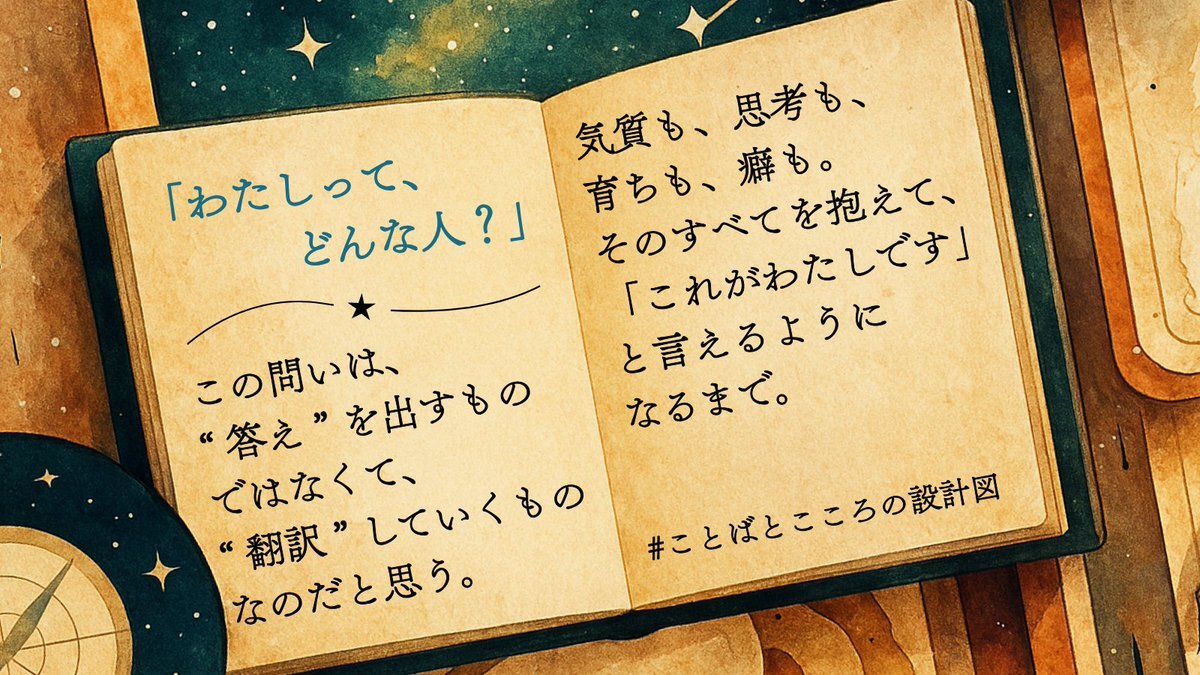 「わたしって、
どんな人？」
この問いは、
“答え”を出すもの
ではなくて、
“翻訳”していくもの
なのだと思う。
気質も、思考も、
育ちも、癖も。
そのすべてを抱えて、
「これがわたしです」
と言えるように
なるまで。
#ことばとこころの設計図